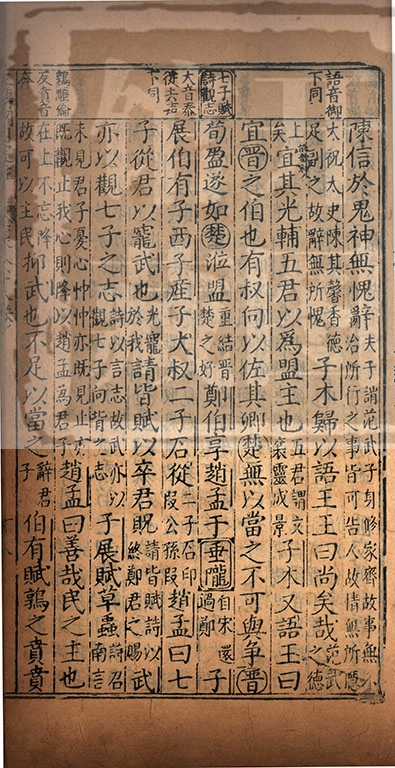 語音御
下同
陳信於鬼神無愧辭夫子謂范武子身修家齊故事無不
治所行之事皆可告人故情無所隱
太祝太史陳其馨香德
足副之故辭無所愧子木歸以語王王曰尚矣哉范武
之德
矣宜其光輔五君以為盟主也五君謂文
襄靈成景子木又語王曰
宜晉之伯也有叔向以佐其卿楚無以當之不可與爭晉
七子賦
詩觀志
荀盈遂如楚涖盟重結晉
楚之好鄭伯享趙孟于垂隴自宋還
過鄭子
大音泰
從去聲
下同
展伯有子西子產子大叔二子石從二子石印
段公孫段趙孟曰七
子從君以寵武也光寵
於我請皆賦以卒君貺請皆賦詩以
終鄭君之賜武
亦以觀七子之志詩以言志故武亦以
觀七子向背之志子展賦草蟲詩召
南言
未見君子憂心忡忡亦既見止亦
既觀止我心則降以趙孟為君子趙孟曰善哉民之主也
鶉順倫
反賁音
奔
在上不忘降
故可以主民抑武也不足以當之辭君
子伯有賦鶉之賁賁